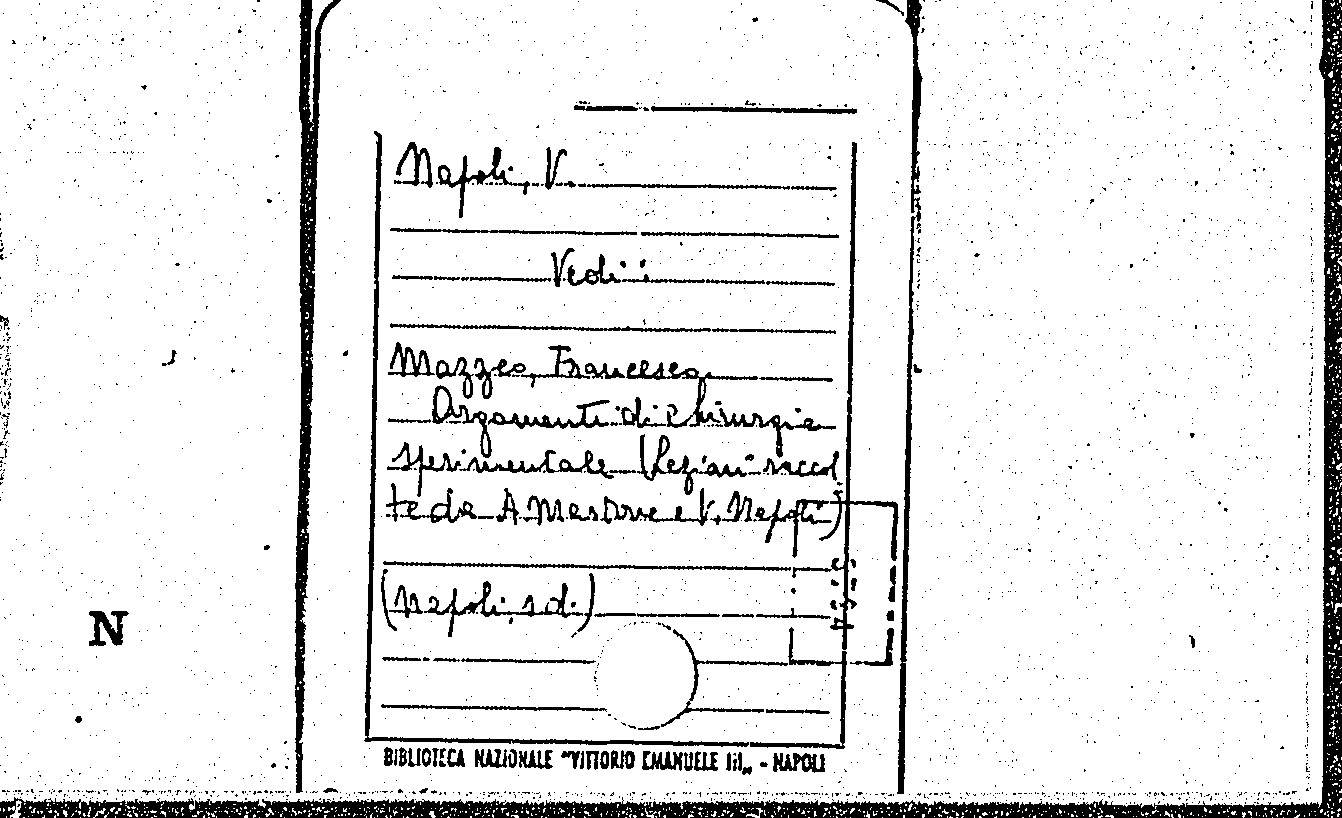 Napoli, V.
Vedi:
Mazzeo, Francesco.
Argomenti di chirurgia
sperimentale (Lezioni raccol
te da A. Mastore e V. Napoli)
(Napoli, s.d.)
N
BIBLIOTECA NAZIONALE "VITTORIO EMANUELE III„ - NAPOLI